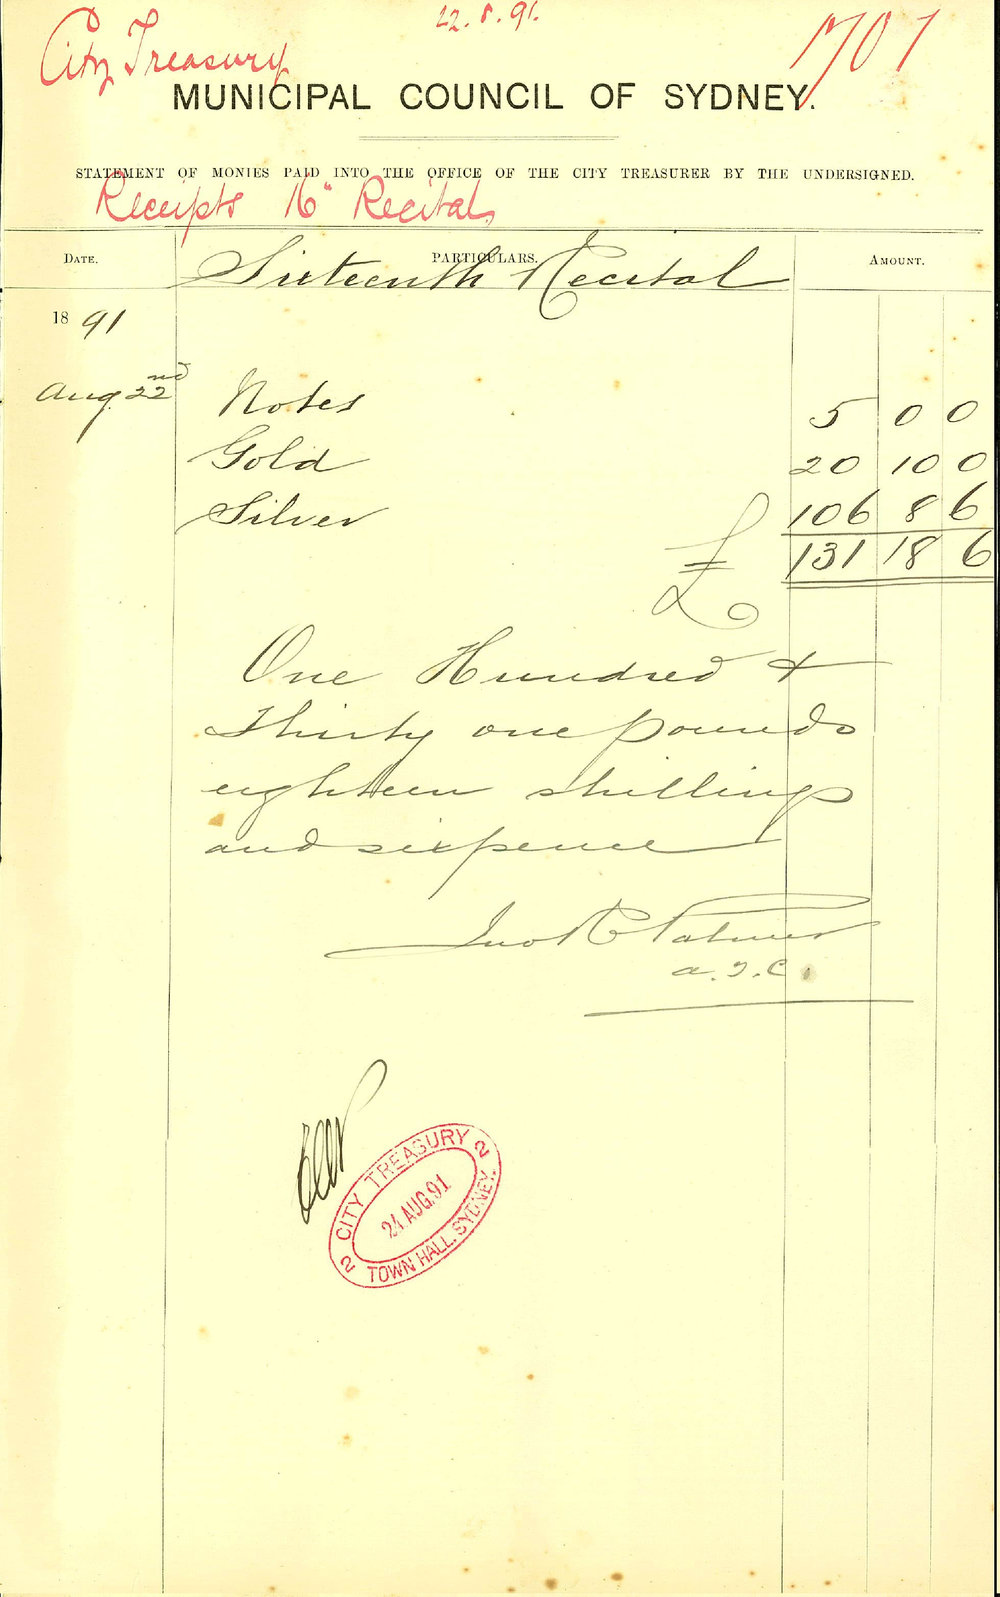 22.8.91.
City Treasury
1707
MUNICIPAL COUNCIL OF SYDNEY.
STATEMENT OF MONIES PAID INTO THE OFFICE OF THE CITY TREASURER BY THE UNDERSIGNED.
Receipts 16" Recital
DATE. PARTICULARS. AMOUNT.
Sixteenth Recital
1891
Aug 22nd Notes 5 0 0
Gold 20 10 0
Silver 106 8 6
£ 131 18 6
One Hundred +
Thirty one pounds
eighteen shillings
and sixpence
Jno R Palmer
a.T.C.
2 CITY TREASURY 2
24 AUG.91
TOWN HALL. SYDNEY.